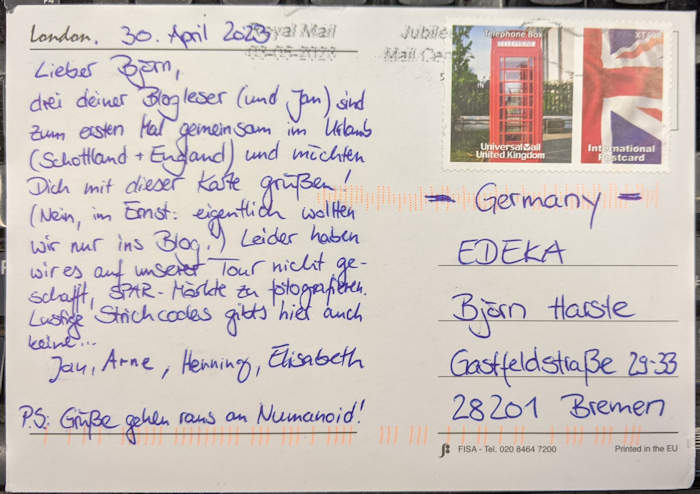 London, 30. April 2023
Royal Mail
03-05-2023
Jubilee
Mail Cen
Lieber Björn,
drei deiner Blogleser (und Jan) sind
zum ersten Mal gemeinsam im Urlaub
(Schottland + England) und möchten
Dich mit dieser Karte grüßen!
(Nein, im Ernst: eigentlich wollten
wir nur ins Blog.) Leider haben
wir es auf unserer Tour nicht ge-
schafft, SPAR-Märkte zu fotografieren.
Lustige Strichcodes gibts hier auch
keine...
Jan, Arne, Henning, Elisabeth
P.S: Grüße gehen raus an Numanoid!
Telephone Box
TELEPHONE
UniversalMail
United Kingdom
International
Postcard
- Germany -
EDEKA
Björn Harste
Gastfeldstraße 29-33
28201 Bremen
FISA - Tel. 020 8464 7200
Printed in the EU